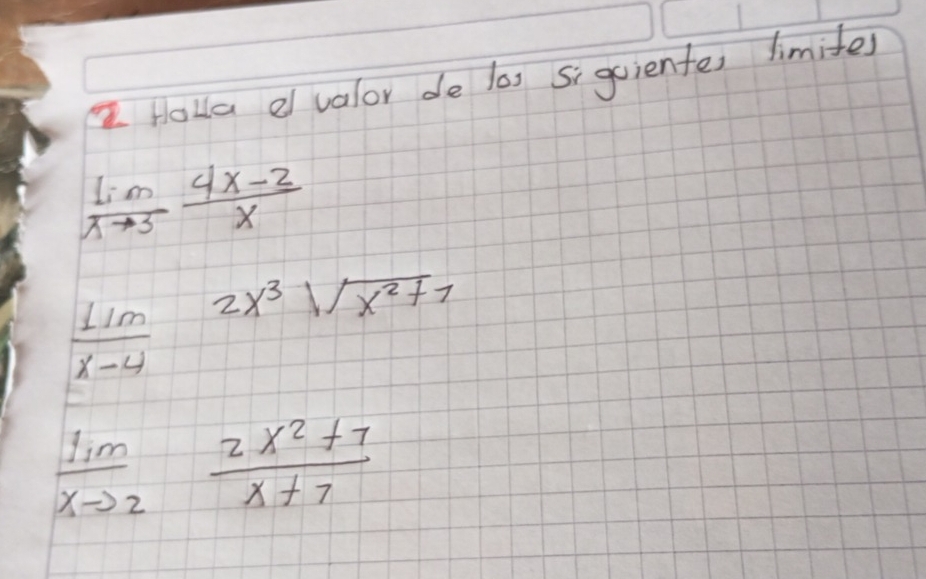 2 Halla el valor de los siguientes limites
lim x→3 (4x-2)/x
Lim x-4 2x³ √x²+7
lim x→2 (2x²+7)/(x+7)